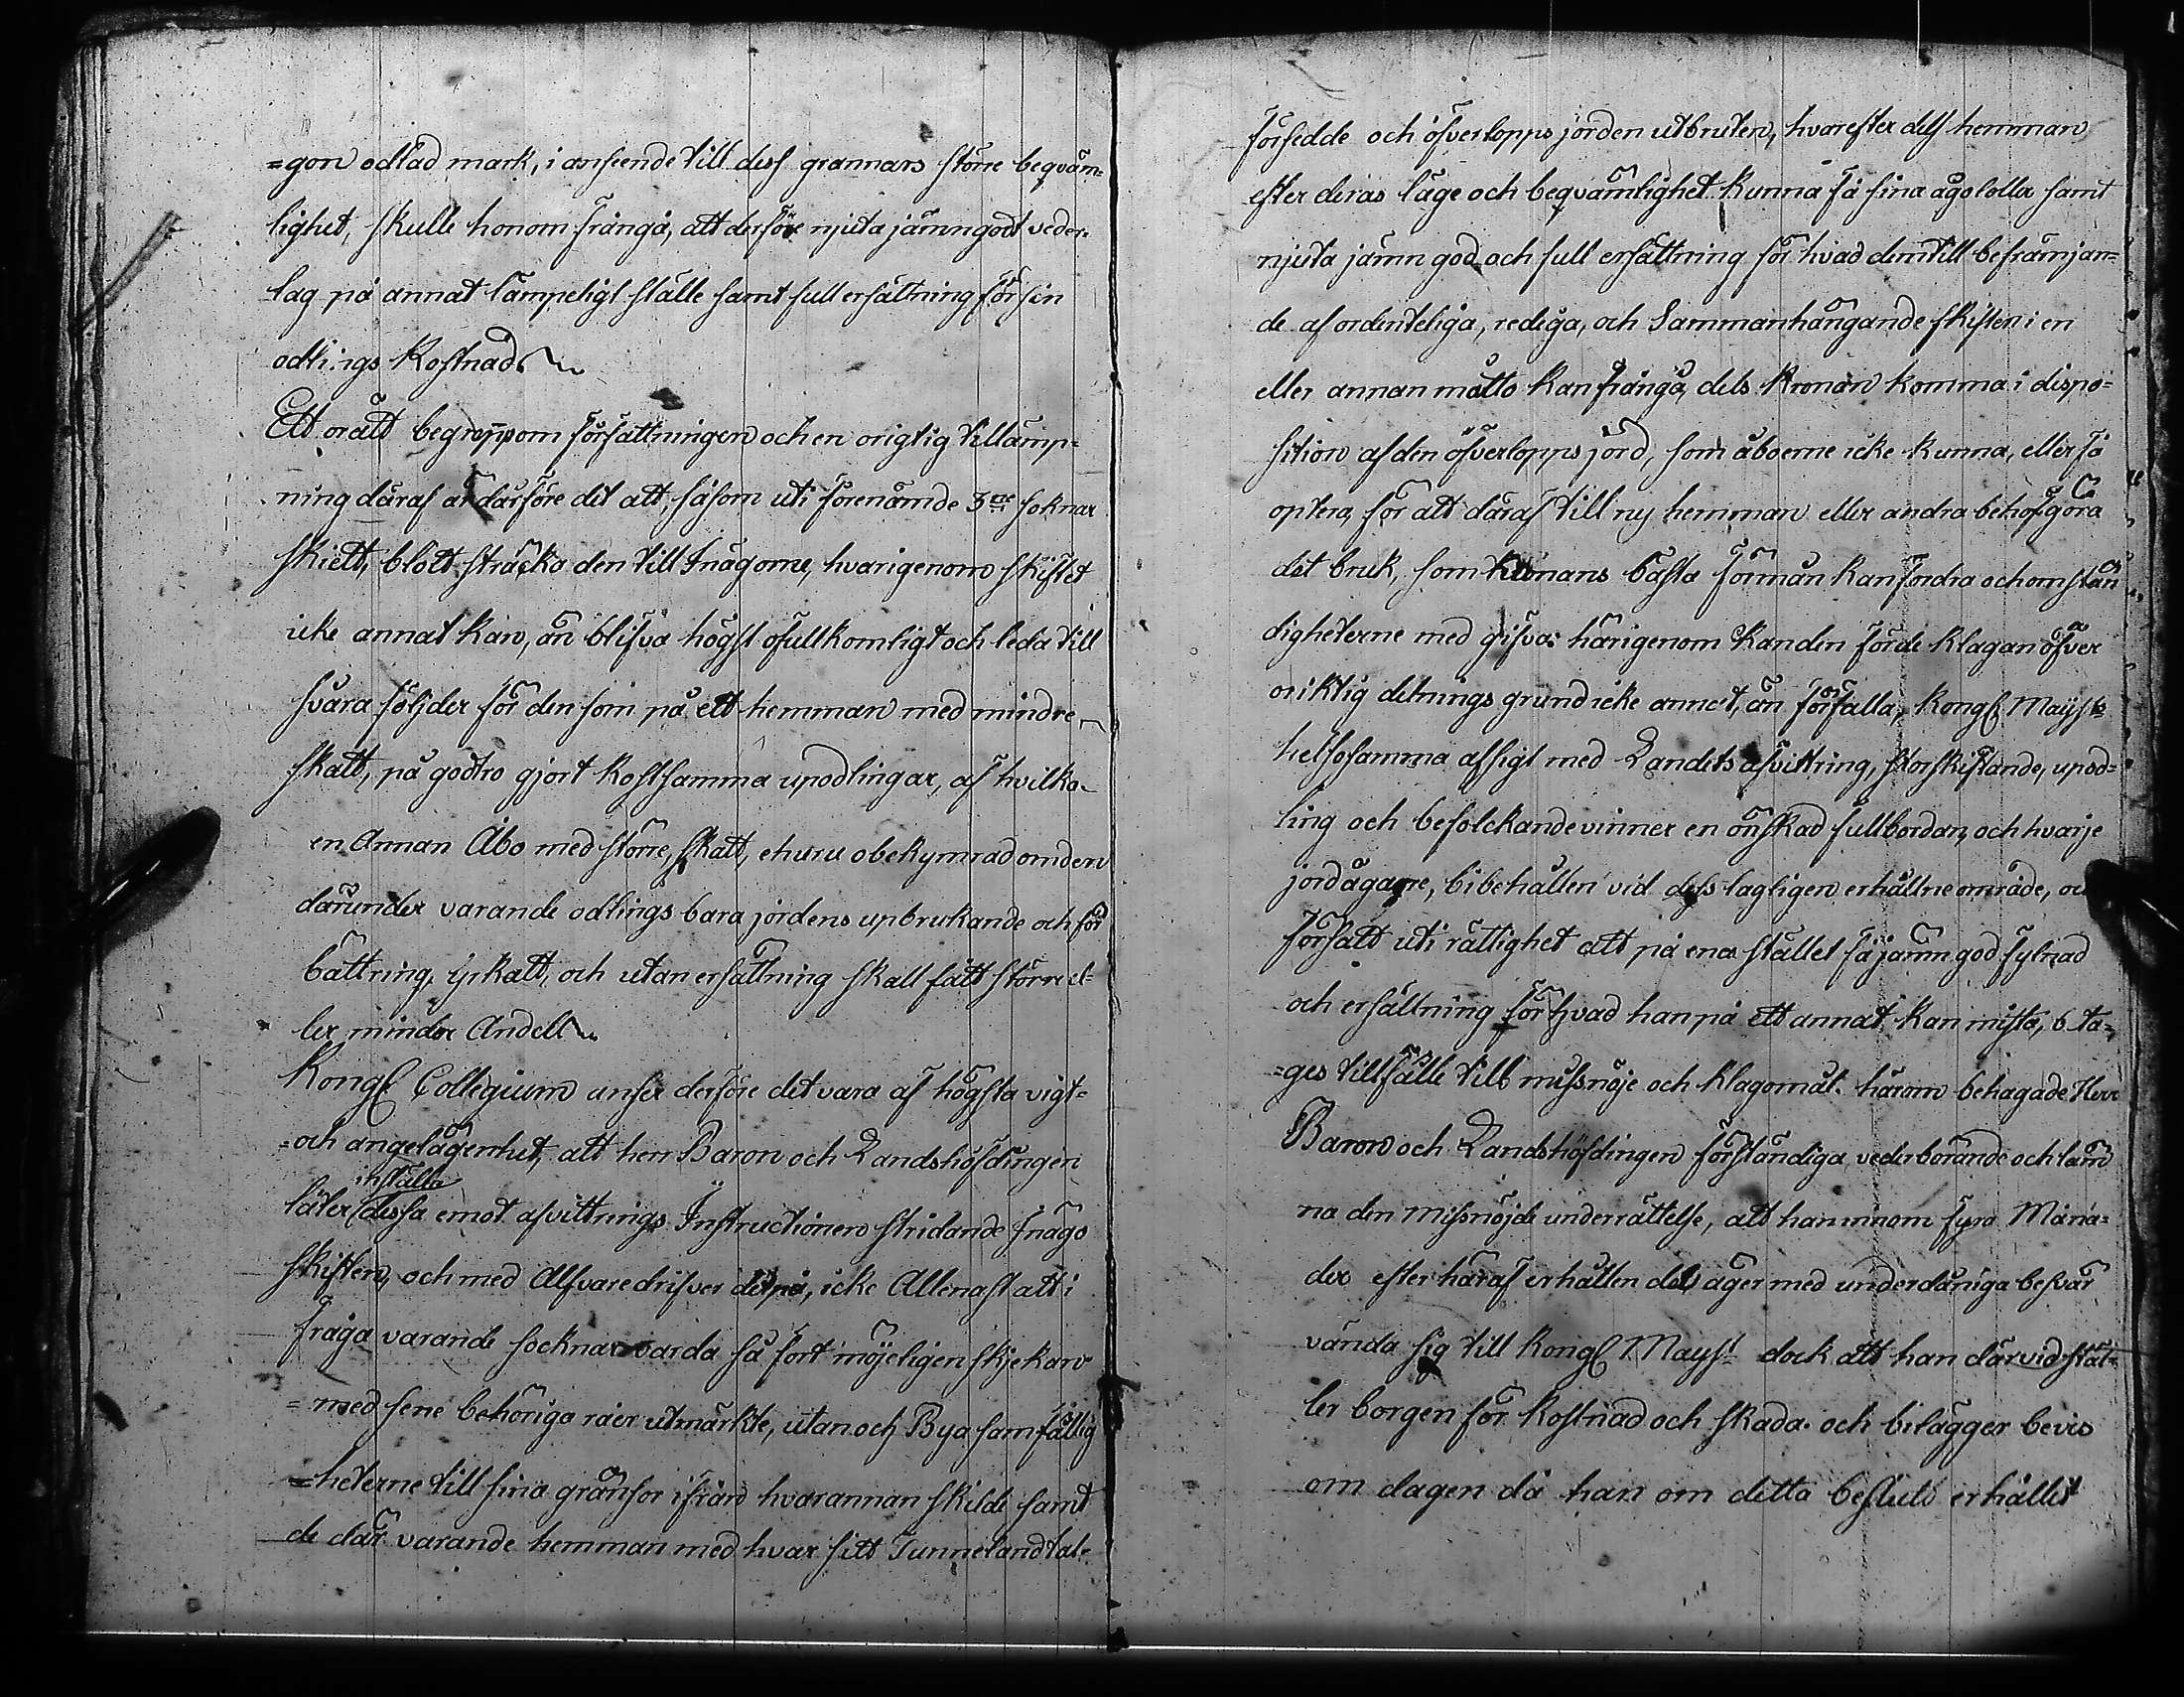 =gon odlad mark, i anseende till dess grannars större beqväm=
lighet, skulle honom frångå, att derföre njuta jämngodt veder=
lag på annat lämpeligt ställe samt full ersättning för sin
odlings Kostnad
Ett orätt begrepp om författningen och en origtig tillämp=
ning däraf är därföre det att, såsom uti förenämde 3ne soknar
skiett, blott sträcka den till Inägorne, hvarigenom skiftet
icke annat kan, än blifva högst ofullkomligt och leda till
svåra följder för den som på ett hemman med mindre
skatt, på godtro gjort kostsamma upodlingar, af hvilka
en Annan Åbo med större skatt, ehuru obekymrad om den
därunder varande odlings bara jordens upbrukande och för
bättring, yrkatt, och utan ersättning skall fått större el=
ler mindre Andel
Kongl Collegium anser derföre det vara af högsta vigt=
=och angelägenhet, att herr Baron och Landshöfdingen
inställa
låter dessa emot afvittrings Instructionen stridande Inägo
skiften, och med Alfvare drifver det på, icke Allenast att i
fråga varande socknar varda så fort möjeligen skje kan
=med sene behöriga råer utmärkte, utan och Bya samfällig
=heterne till sina gränsor ifrån hvarannan skilde samt
de där varande hemman med hvar sitt Tunnelandtal=
försedde och öfverlopps jorden utbruten, hvarefter dels hemman
efter deras läge och beqvämlighet kunna få sina ägolotter samt
njuta jämn god och full ersättning för hvad dem till befrämjan=
de af ordenteliga, rediga, och Sammanhängande skiften i en
eller annan måtto kan frångå, dels Kronan komma i dispo=
sition af den öfverlopps jord, som åboerne icke kunna, eller få
optera, för att däraf till ny hemman eller andra behof göra
det bruk, som Kronans bästa förmån kan fordra och omstän
digheterne med gifva: härigenom kan den förde klagan öfver
oriktig delnings grund icke annat, än förfalla, Kongl Mayst:s
helsosamma afsigt med Landets afvittring, storskiftande, upod=
ling och befolckande vinner en önskad fullbordan, och hvarje
jordägare, bibehållen vid dess lagligen erhållne område, och
försatt uti rättighet att på ena stället få jämn god fylnad
och ersättning för hvad han på ett annat kan mista, b ta=
=ges tillfälle till missnöje och klagomål. härom behagade Herr
Baron och Landshöfdingen förständiga vederbörande och läm
na den missnöjde underrättelse, att han innom fyra Måna=
der efter häraf erhållen del äger med underdåniga besvär
vända sig till Kongl Mayst dock att han därvid stäl=
ler borgen för kostnad och skada. och bilägger bevis
om dagen då han om detta beslut erhållit